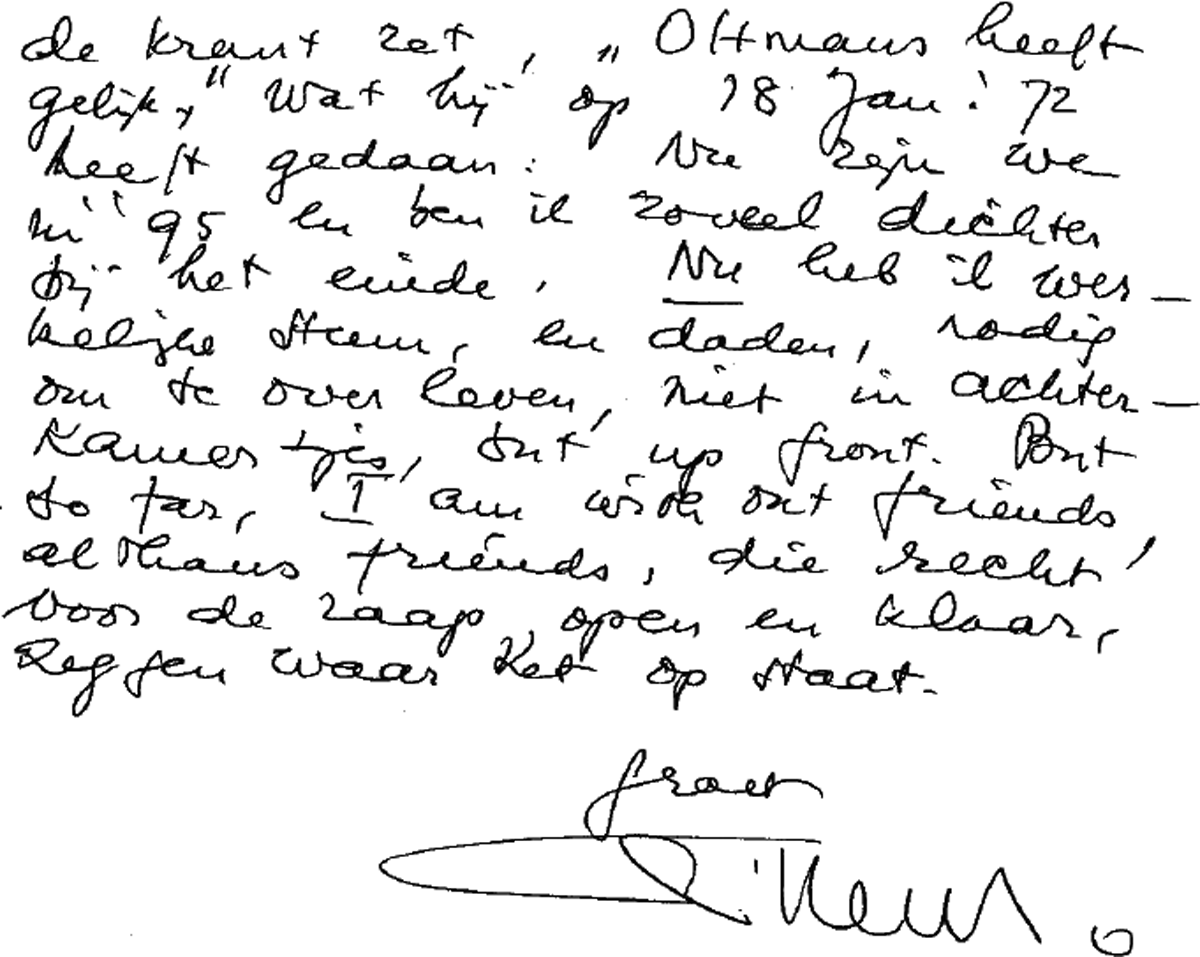 de krant zet, „Oltmans heeft
gelijk," wat hij op 18 Jan. '72
heeft gedaan. Nu zijn we
in '95 en ben ik zoveel dichter
bij het einde. Nu heb ik wer-
kelijke steun, en daden, nodig
om te overleven, niet in achter-
kamertjes, but up front. But
so far, I am without friends,
althans friends, die recht
voor de raap open en klaar,
zeggen waar het op staat.
groet
Willem O